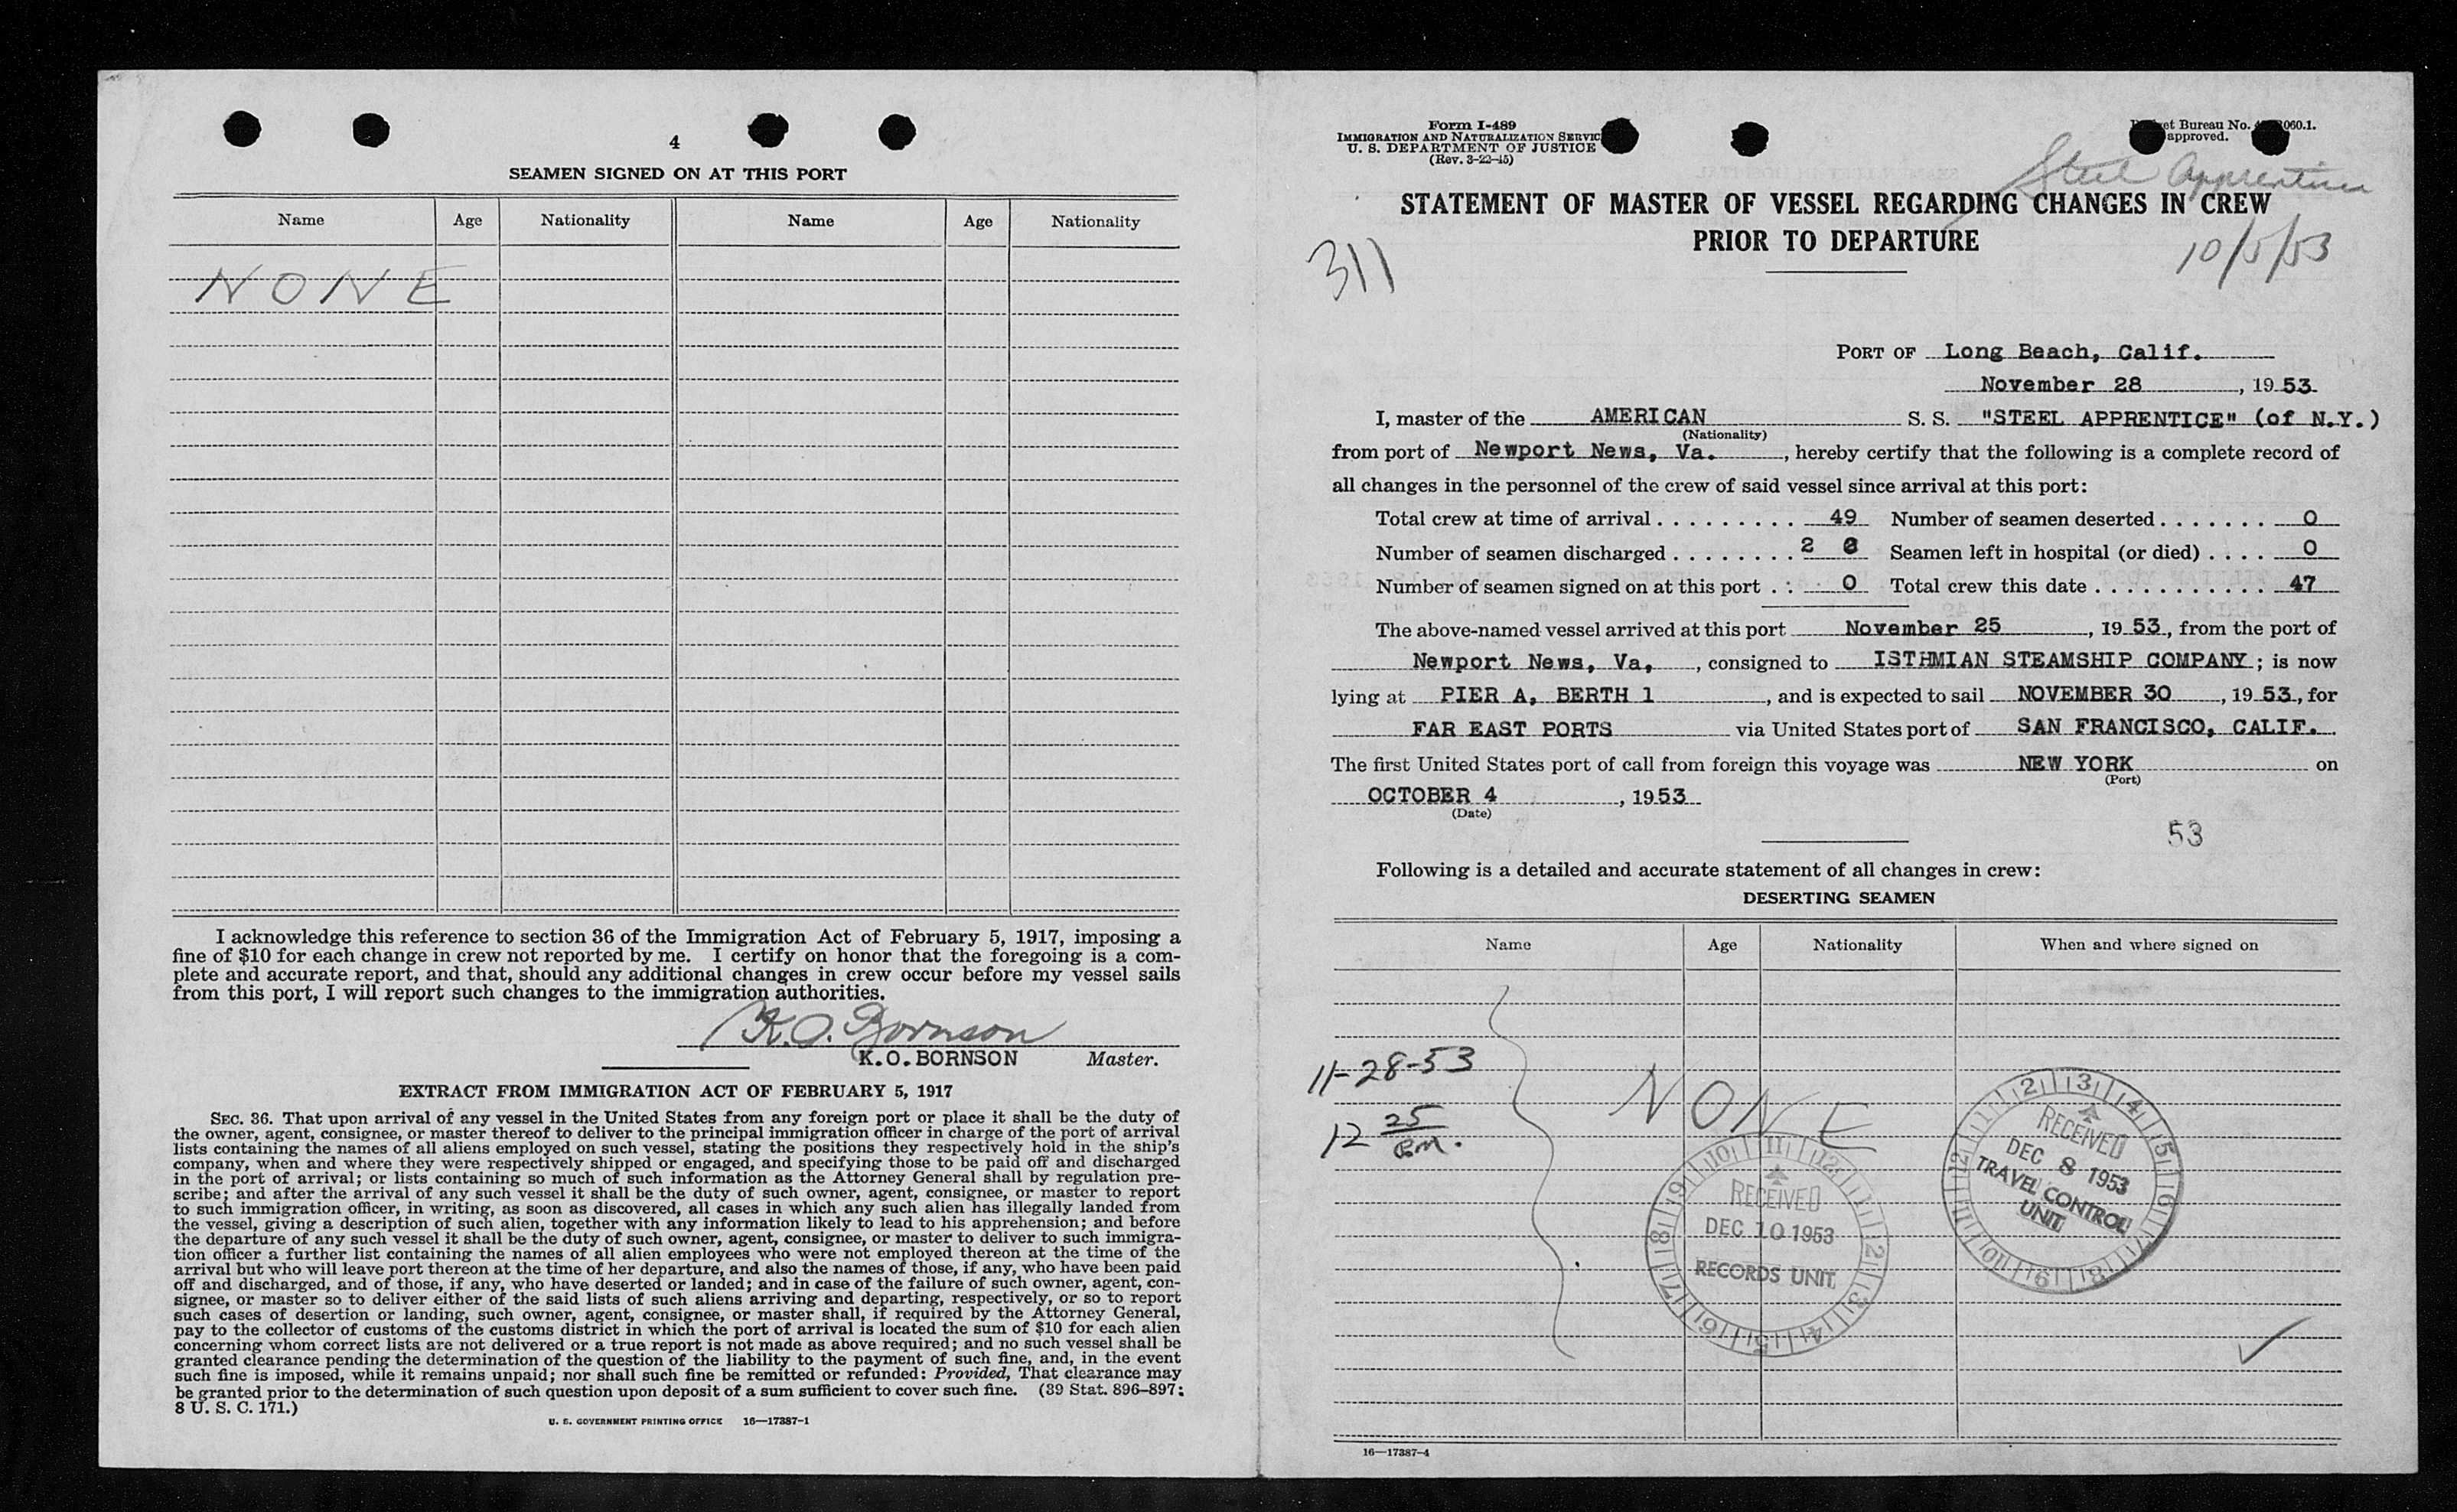 4
SEAMEN SIGNED ON AT THIS PORT
Name Age Nationality Name Age Nationality
NONE
I acknowledge this reference to section 36 of the Immigration Act of February 5, 1917, imposing a
fine of $10 for each change in crew not reported by me. I certify on honor that the foregoing is a com-
plete and accurate report, and that, should any additional changes in crew occur before my vessel sails
from this port, I will report such changes to the immigration authorities.
K. O. Bornson
K.O.BORNSON Master.
EXTRACT FROM IMMIGRATION ACT OF FEBRUARY 5, 1917
SEC. 36. That upon arrival of any vessel in the United States from any foreign port or place it shall be the duty of
the owner, agent, consignee, or master thereof to deliver to the principal immigration officer in charge of the port of arrival
lists containing the names of all aliens employed on such vessel, stating the positions they respectively hold in the ship's
company, when and where they were respectively shipped or engaged, and specifying those to be paid off and discharged
in the port of arrival; or lists containing so much of such information as the Attorney General shall by regulation pre-
scribe; and after the arrival of any such vessel it shall be the duty of such owner, agent, consignee, or master to report
to such immigration officer, in writing, as soon as discovered, all cases in which any such alien has illegally landed from
the vessel, giving a description of such alien, together with any information likely to lead to his apprehension; and before
the departure of any such vessel it shall be the duty of such owner, agent, consignee, or master to deliver to such immigra-
tion officer a further list containing the names of all alien employees who were not employed thereon at the time of the
arrival but who will leave port thereon at the time of her departure, and also the names of those, if any, who have been paid
off and discharged, and of those, if any, who have deserted or landed; and in case of the failure of such owner, agent, con-
signee, or master so to deliver either of the said lists of such aliens arriving and departing, respectively, or so to report
such cases of desertion or landing, such owner, agent, consignee, or master shall, if required by the Attorney General,
pay to the collector of customs of the customs district in which the port of arrival is located the sum of $10 for each alien
concerning whom correct lists are not delivered or a true report is not made as above required; and no such vessel shall be
granted clearance pending the determination of the question of the liability to the payment of such fine, and, in the event
such fine is imposed, while it remains unpaid; nor shall such fine be remitted or refunded: Provided, That clearance may
be granted prior to the determination of such question upon deposit of a sum sufficient to cover such fine. (39 Stat. 896–897;
8 U. S. C. 171.)
U. S. GOVERNMENT PRINTING OFFICE 16—17387-1
Form I-489
IMMIGRATION AND NATURALIZATION SERVIC
U. S. DEPARTMENT OF JUSTICE
(Rev. 3-22-45)
et Bureau No. 060.1.
approved.
Steel Apprentice
STATEMENT OF MASTER OF VESSEL REGARDING CHANGES IN CREW
PRIOR TO DEPARTURE
311
10/5/53
PORT OF Long Beach, Calif.
November 28, 1953
I, master of the AMERICAN S. S. "STEEL APPRENTICE" (of N.Y.)
(Nationality)
from port of Newport News, Va., hereby certify that the following is a complete record of
all changes in the personnel of the crew of said vessel since arrival at this port:
Total crew at time of arrival 49 Number of seamen deserted 0
Number of seamen discharged 2 Seamen left in hospital (or died) 0
Number of seamen signed on at this port 0 Total crew this date 47
The above-named vessel arrived at this port November 25, 1953, from the port of
Newport News, Va., consigned to ISTHMIAN STEAMSHIP COMPANY; is now
lying at PIER A, BERTH 1, and is expected to sail NOVEMBER 30, 1953, for
FAR EAST PORTS via United States port of SAN FRANCISCO, CALIF.
The first United States port of call from foreign this voyage was NEW YORK on
(Port)
OCTOBER 4, 1953
(Date)
53
Following is a detailed and accurate statement of all changes in crew:
DESERTING SEAMEN
Name Age Nationality When and where signed on
11-28-53
12 25 P.M.
NONE
RECEIVED
DEC 8 1953
TRAVEL CONTROL
UNIT
RECEIVED
DEC 10 1953
RECORDS UNIT
16—17387-4